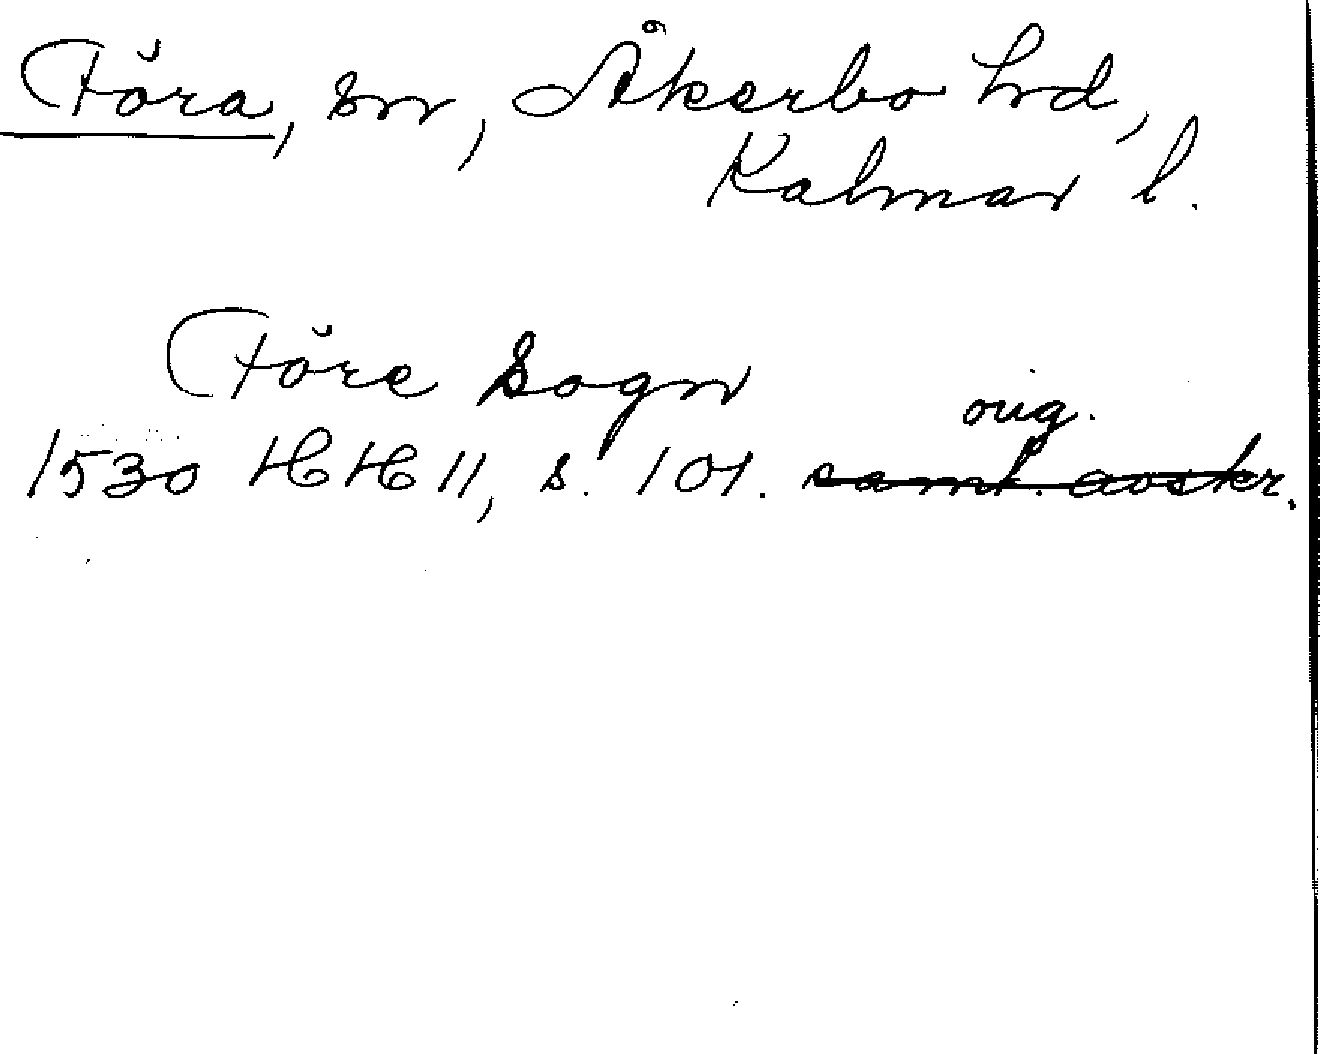 Föra, sn, Åkerbo hd,
Kalmar l.
Före Sogn
orig.
1530 HH 11, s. 101. samt. avskr.